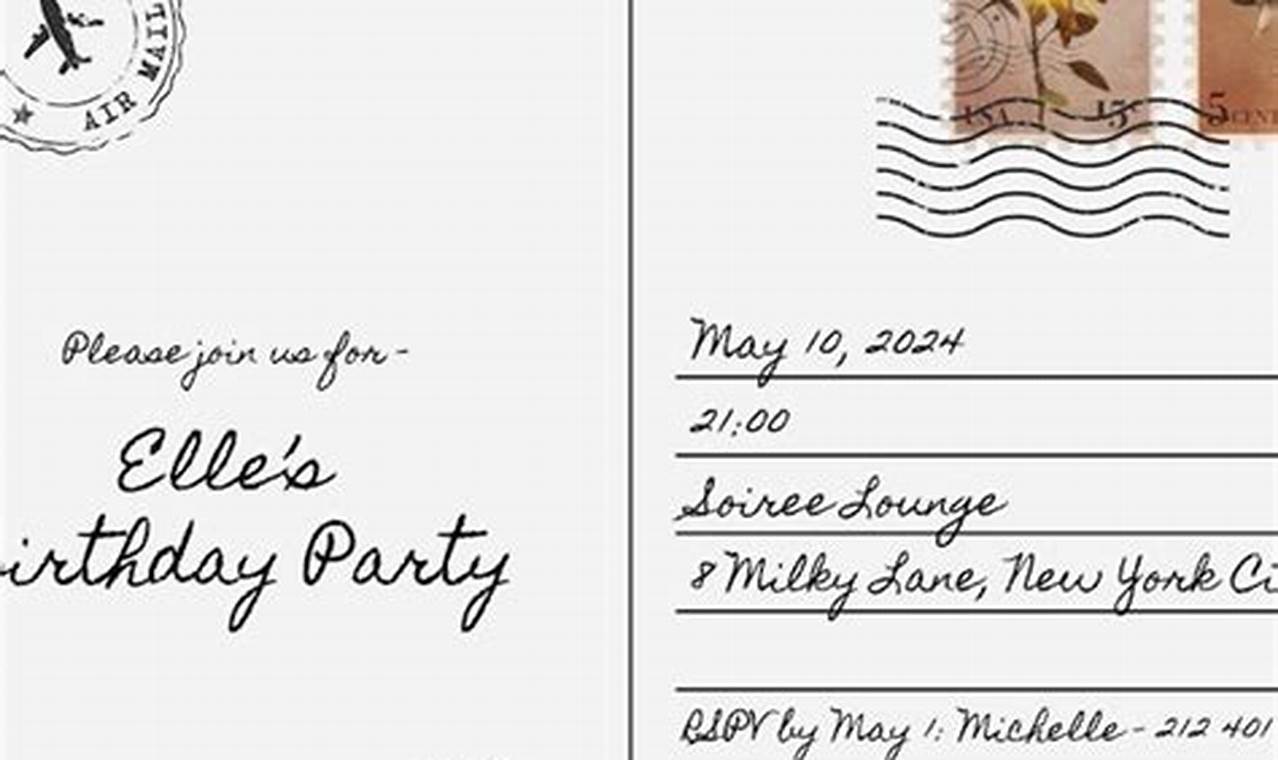 AIR MAIL
USA 13c
5 CENT
Please join us for -
Elle's
irthday Party
May 10, 2024
21:00
Soiree Lounge
8 Milky Lane, New York Ci
RSPV by May 1: Michelle - 212 401